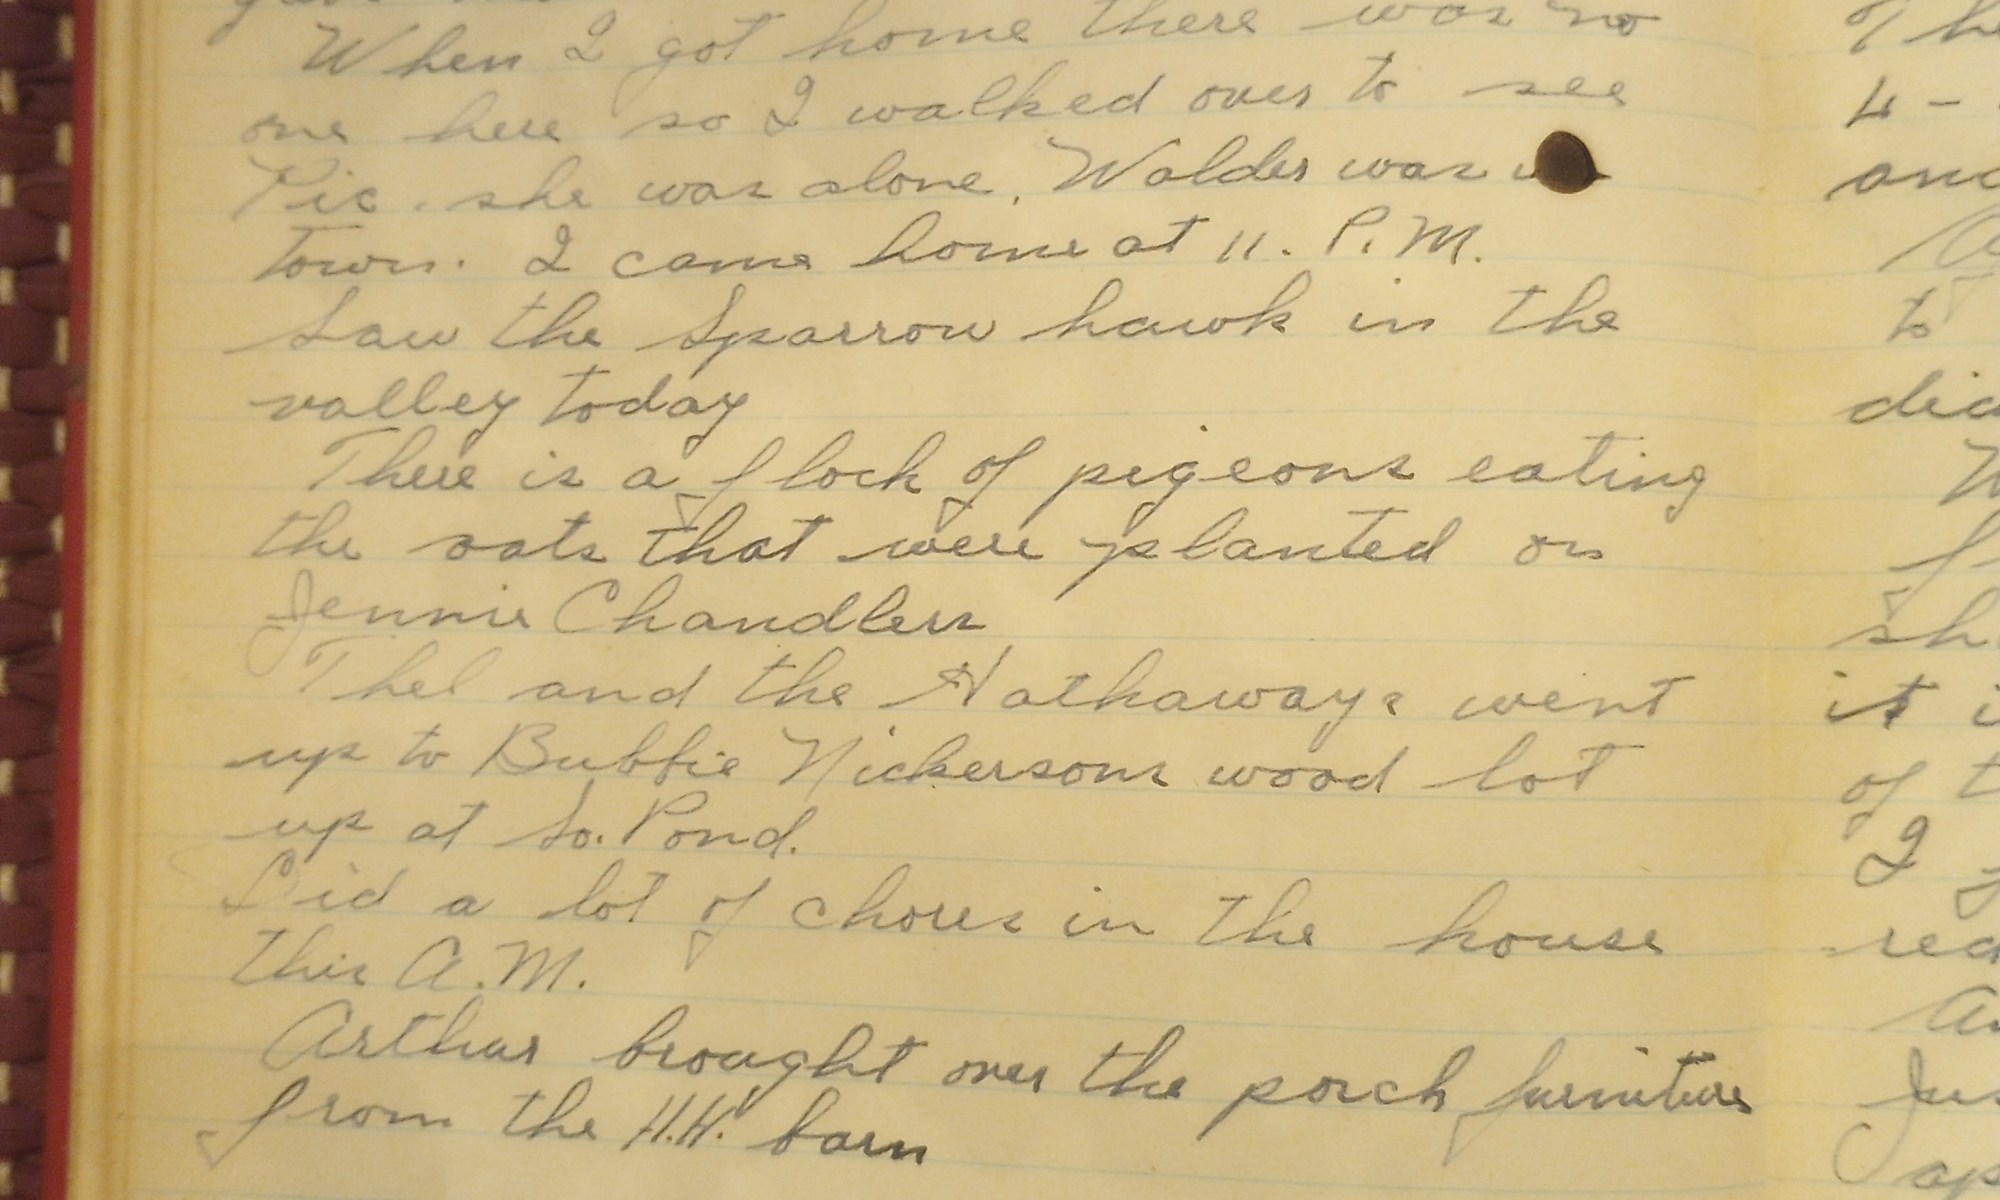 When I got home there was no
one here so I walked over to see
Pic. she was alone. Walder was
town. I came home at 11. P.M.
Saw the Sparrow hawk in the
valley today
There is a flock of pigeons eating
the oats that were planted on
Jennie Chandlers
Thel and the Hathaways went
up to Bubbie Nickersons wood lot
up at So. Pond.
Did a lot of chores in the house
this A.M.
Arthur brought over the porch furniture
from the H.H. barn
4 -
to
it
of
I